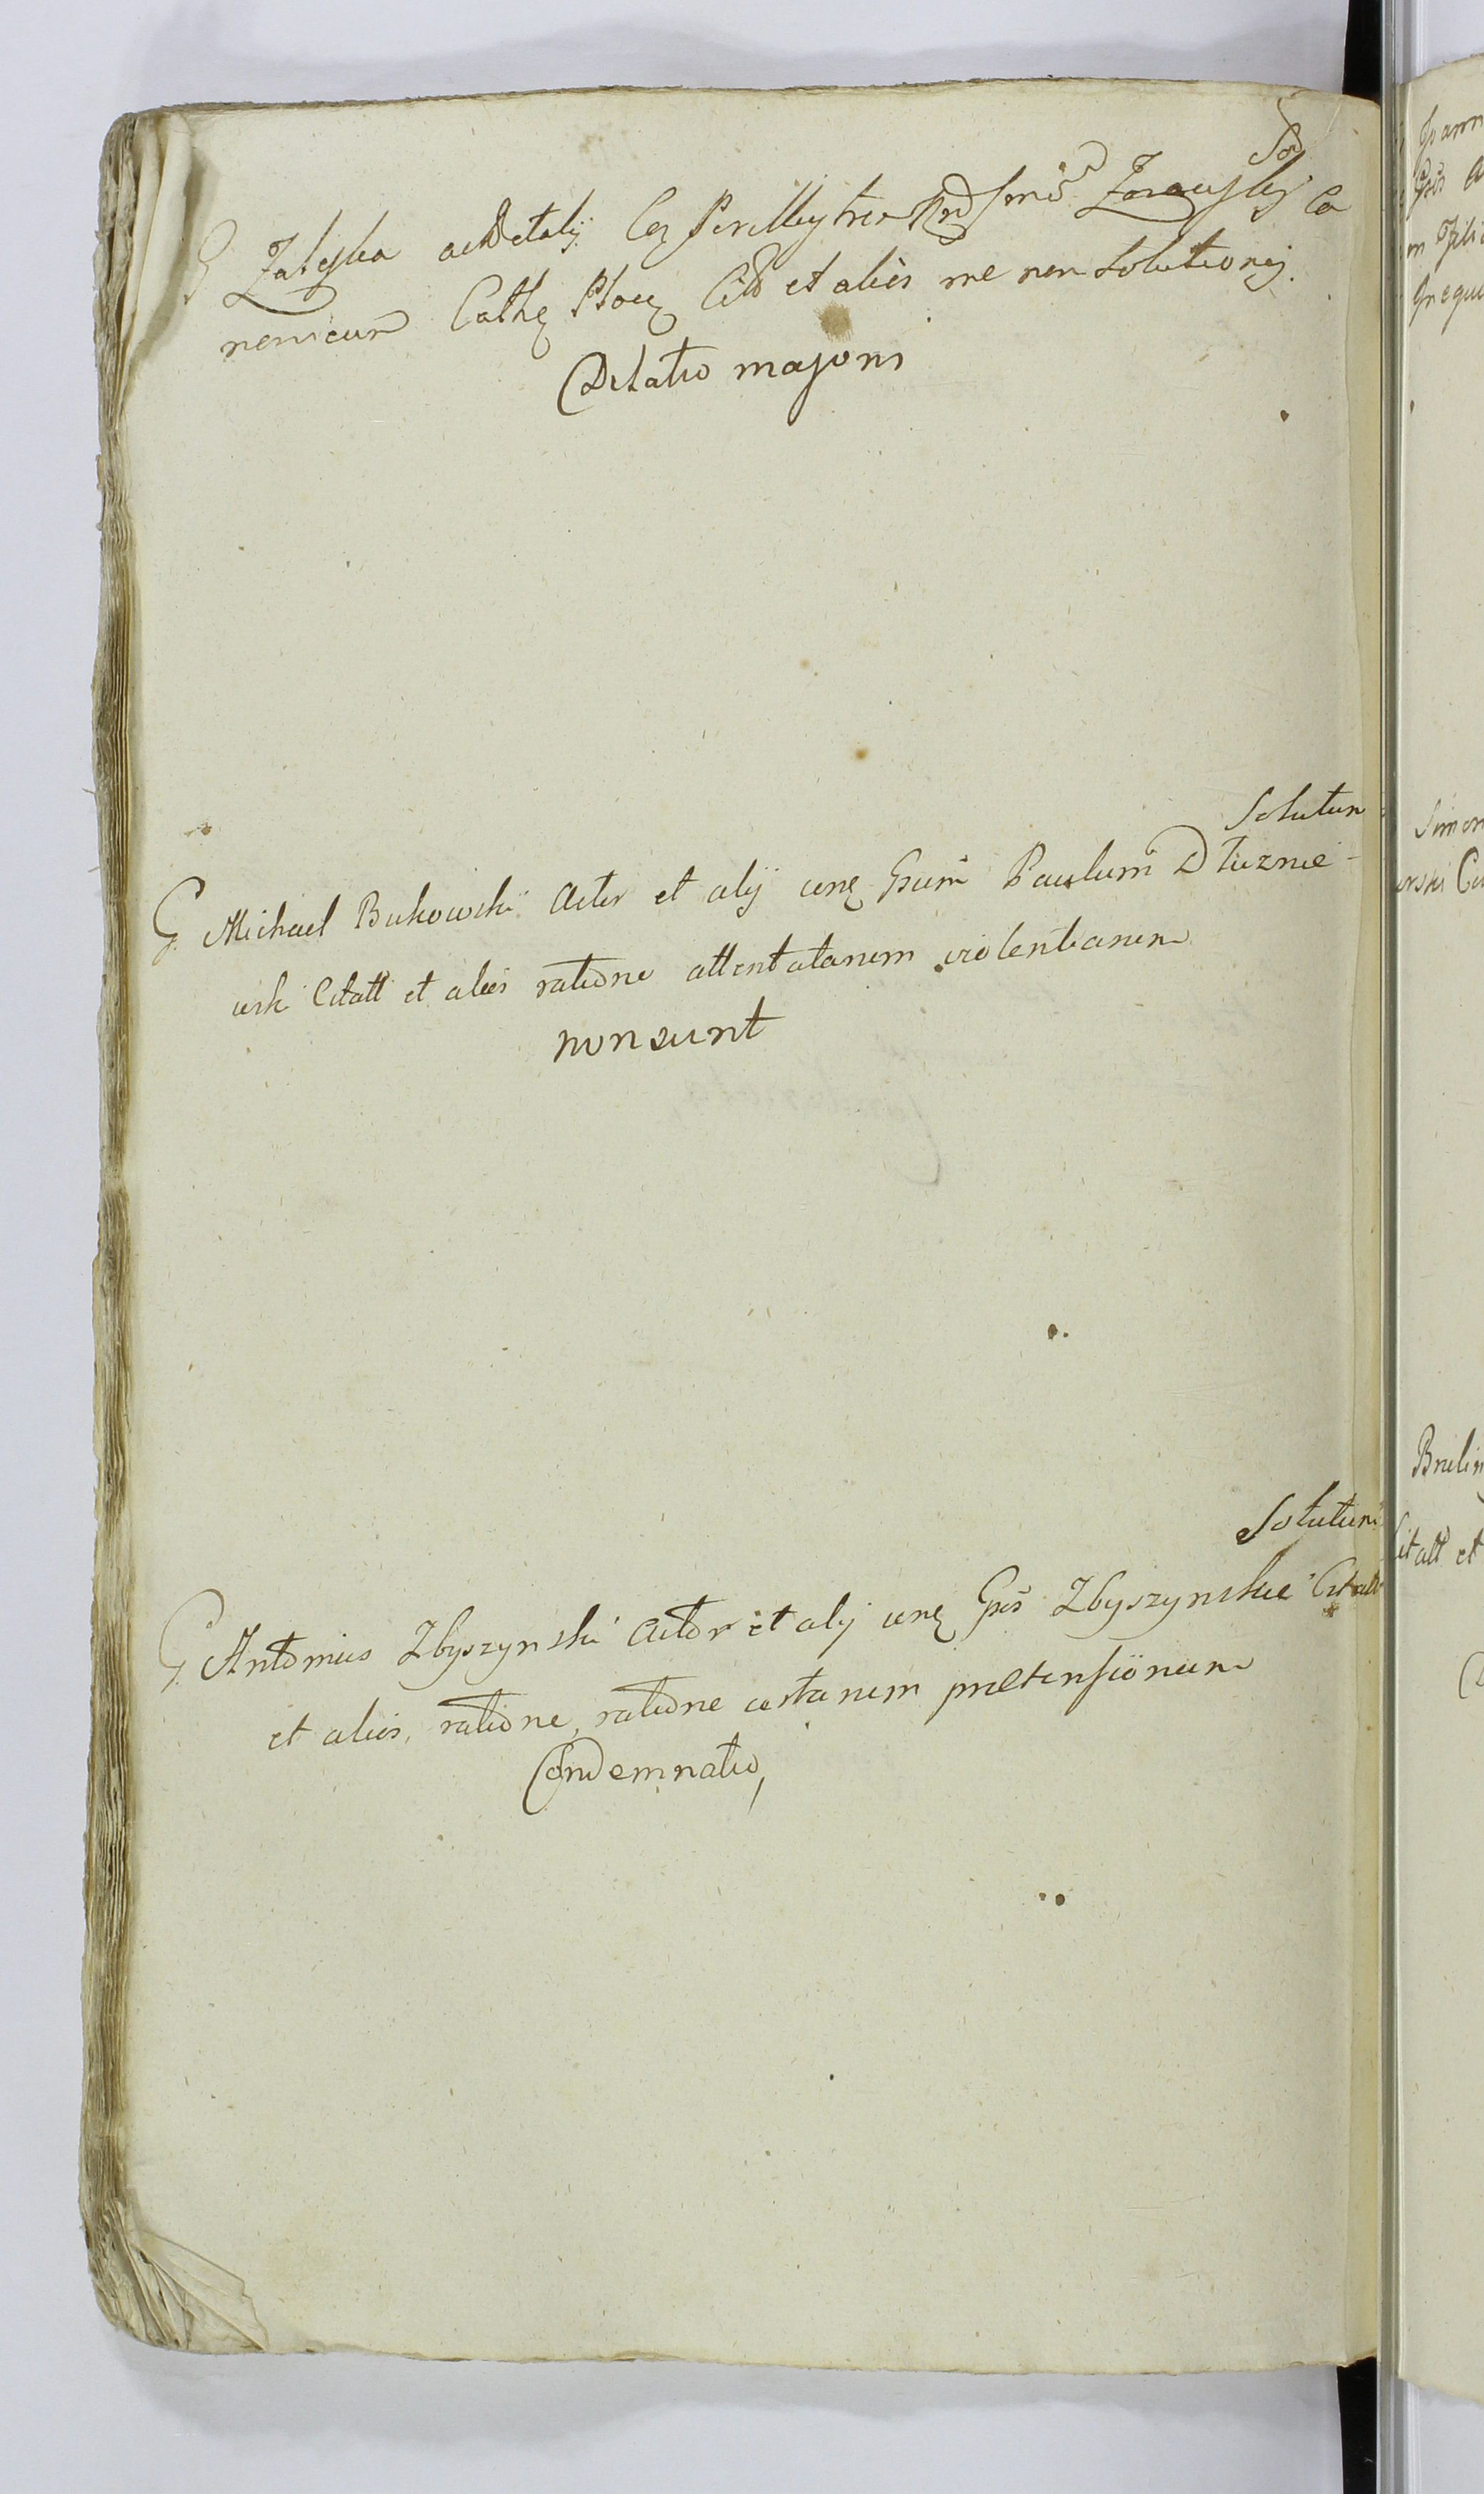 Sol
G Zaleska actor et alij Cer Perillustrem Rnd Zarayski Ca
nonicum Cathe Ploce Citt et alios rne non Solutionis.
Dilatio majoris
Solutum
G. Michael Bukowski Actor et alij cnę Gsum Paulum Dłuzniew-
wski Citatt et alios ratione attentatarum violentiarum
non sunt
Solutum
G. Antonius Zbyszynski Actor et alij cnę Gsos Zbyszynskie Citatt
et alios, ratione, ratione certarum praetensionum
Condemnatio,